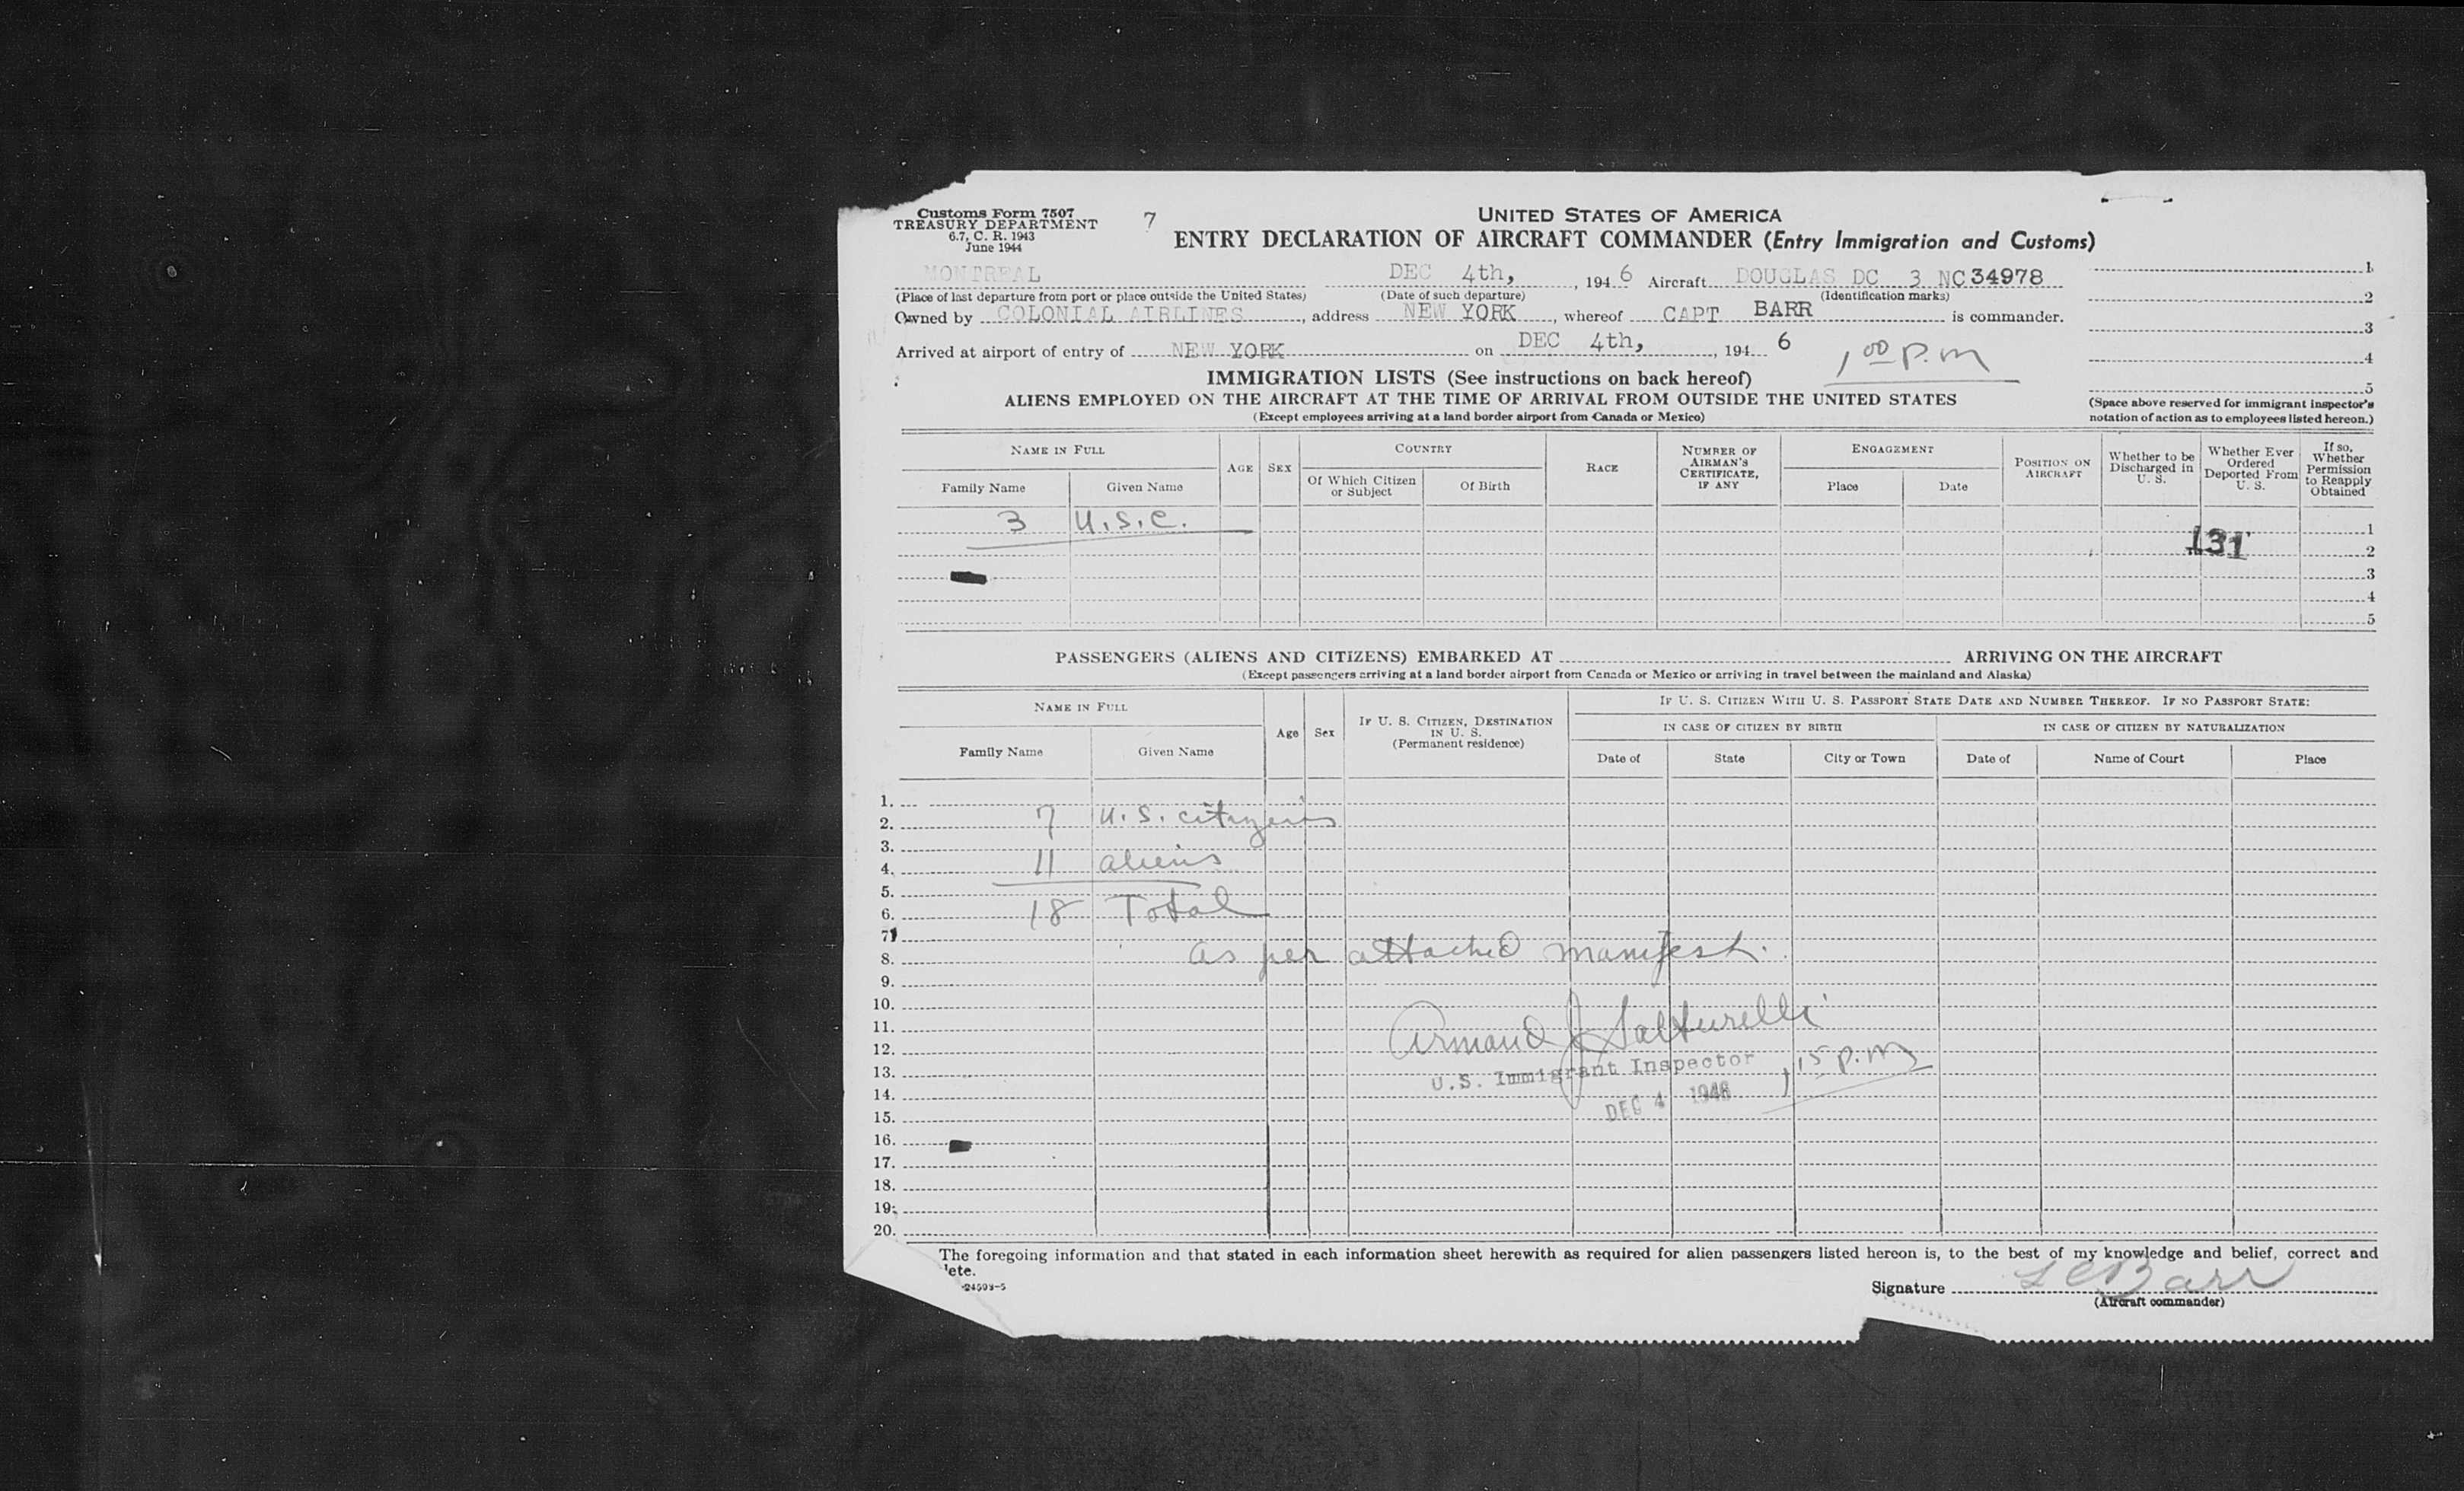 Customs Form 7507
TREASURY DEPARTMENT
6.7, C. R. 1943
June 1944
7
UNITED STATES OF AMERICA
ENTRY DECLARATION OF AIRCRAFT COMMANDER (Entry Immigration and Customs)
MONTREAL DEC 4th, , 194 6 Aircraft DOUGLAS DC 3 NC 34978
(Place of last departure from port or place outside the United States) (Date of such departure) (Identification marks)
Owned by COLONIAL AIRLINES, address NEW YORK, whereof CAPT BARR is commander.
Arrived at airport of entry of NEW YORK on DEC 4th, , 194 6 1,00 p.m
1
2
3
4
5
(Space above reserved for immigrant inspector's
notation of action as to employees listed hereon.)
IMMIGRATION LISTS (See instructions on back hereof)
ALIENS EMPLOYED ON THE AIRCRAFT AT THE TIME OF ARRIVAL FROM OUTSIDE THE UNITED STATES
(Except employees arriving at a land border airport from Canada or Mexico)
NAME IN FULL
Family Name Given Name
AGE
SEX
COUNTRY
Of Which Citizen or Subject
Of Birth
RACE
NUMBER OF AIRMAN'S CERTIFICATE, IF ANY
ENGAGEMENT
Place Date
POSITION ON AIRCRAFT
Whether to be Discharged in U. S.
Whether Ever Ordered Deported From U. S.
If so, Whether Permission to Reapply Obtained
3 U.S.C. 1
131 2
3
4
5
PASSENGERS (ALIENS AND CITIZENS) EMBARKED AT ARRIVING ON THE AIRCRAFT
(Except passengers arriving at a land border airport from Canada or Mexico or arriving in travel between the mainland and Alaska)
NAME IN FULL
Family Name Given Name
Age
Sex
IF U. S. CITIZEN, DESTINATION IN U. S. (Permanent residence)
IF U. S. CITIZEN WITH U. S. PASSPORT STATE DATE AND NUMBER THEREOF. IF NO PASSPORT STATE:
IN CASE OF CITIZEN BY BIRTH IN CASE OF CITIZEN BY NATURALIZATION
Date of State City or Town Date of Name of Court Place
1.
2. 7 U.S. citizens
3.
4. 11 aliens
5.
6. 18 Total
7
8. as per attached manifest.
9.
10.
11. Armand J Salturelli
12.
13. U.S. Immigrant Inspector 1,15 p.m
14. DEC 4 1946
15.
16.
17.
18.
19.
20.
The foregoing information and that stated in each information sheet herewith as required for alien passengers listed hereon is, to the best of my knowledge and belief, correct and
lete.
24503-5
Signature L C Barr
(Aircraft commander)